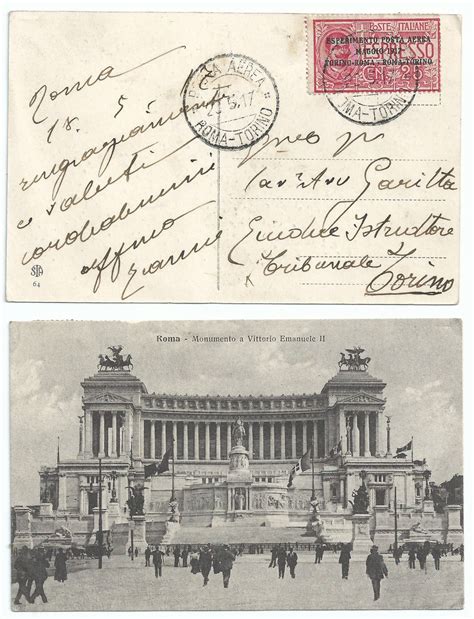 POSTE ITALIANE
ESPERIMENTO POSTA AEREA
MAGGIO 1917
TORINO-ROMA · ROMA-TORINO
ESPRESSO
25
POSTA AEREA
5.17
ROMA-TORINO
OMA-TORINO
Roma
18. 5
ringraziamenti
e saluti
cordialissimi
Cav Avv Garitta
Giudice Istruttore
Tribunale
Torino
STA
64
Roma - Monumento a Vittorio Emanuele II